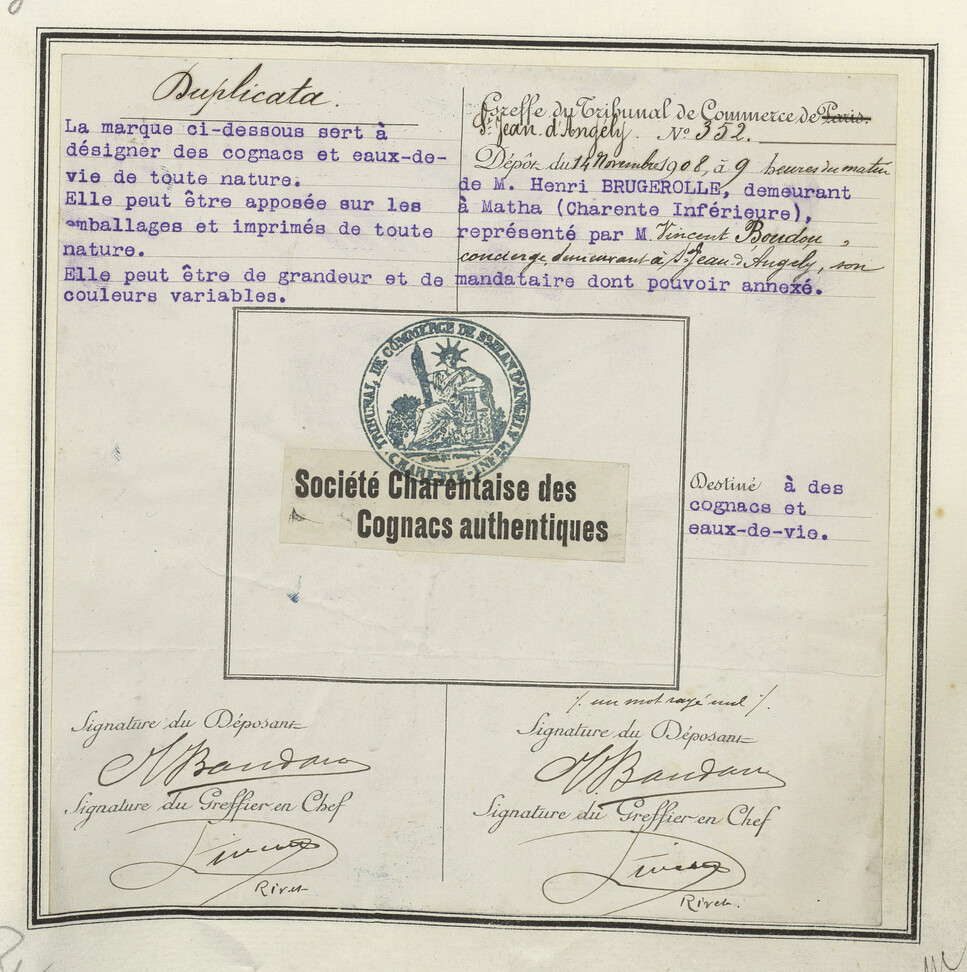 Duplicata.
La marque ci-dessous sert à
désigner des cognacs et eaux-de-
vie de toute nature.
Elle peut être apposée sur les
emballages et imprimés de toute
nature.
Elle peut être de grandeur et de
couleurs variables.
Greffe du Tribunal de Commerce de Paris.
St Jean d'Angély. No 352.
Dépôt du 14 Novembre 1908, à 9 heures du matin
de M. Henri BRUGEROLLE, demeurant
à Matha (Charente Inférieure),
représenté par M. Vincent Boudou,
concierge demeurant à St Jean d'Angély, son
mandataire dont pouvoir annexé.
TRIBUNAL DE COMMERCE DE St JEAN D'ANGELY
CHARENTE-INFre
Société Charentaise des
Cognacs authentiques
Destiné à des
cognacs et
eaux-de-vie.
Signature du Déposant
VBoudou
Signature du Greffier en Chef
Rivet
/. un mot rayé nul /.
Signature du Déposant
VBoudou
Signature du Greffier en Chef
Rivet.